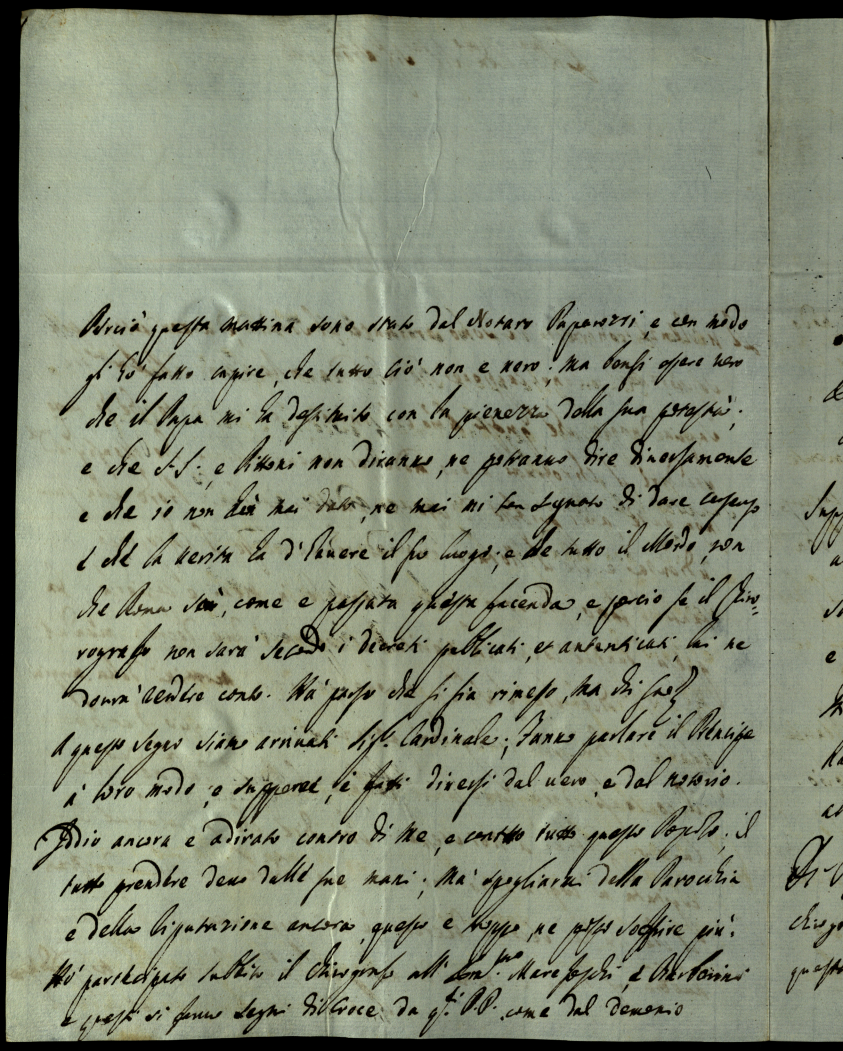 Perciò questa mattina sono stato dal Notaro Paparozzi, e con modo
gl'hò fatto capire, che tutto Ciò non e vero; ma bensi essere vero
che il Papa mi hà destituito con la pienezza della sua potestà;
e che S.S., e Pittoni non diranno, ne potranno dire diversamente
e che io non hò mai dato, ne mai mi son sognato di dare
e che la verita ha d'havere il suo luogo, e che tutto il Mondo, non
che Roma sà, come e passata questa facenda, e perciò se il Chi-
rografo non sarà secondo i decreti publicati, et autenticati, lui ne
dovrà rendere conto. Hà preso che si sia rimesso, ma
A questo segno siamo arrivati Sig.r Cardinale; Fanno parlare il Principe
à loro modo, e fatti diversi dal vero, e dal notorio.
Iddio ancora e adirato contro di Me, e contro tutto questo Popolo; il
tutto prendere devo dalle sue mani; Mà spogliarmi della Parochia
e della riputazione ancora, questo e troppo, ne posso soffrire più.
Hò participato subbito il Chirografo all' Marefoschi, e Barberini
e questi si fanno segni di Croce da q.ti P.P. come dal demonio